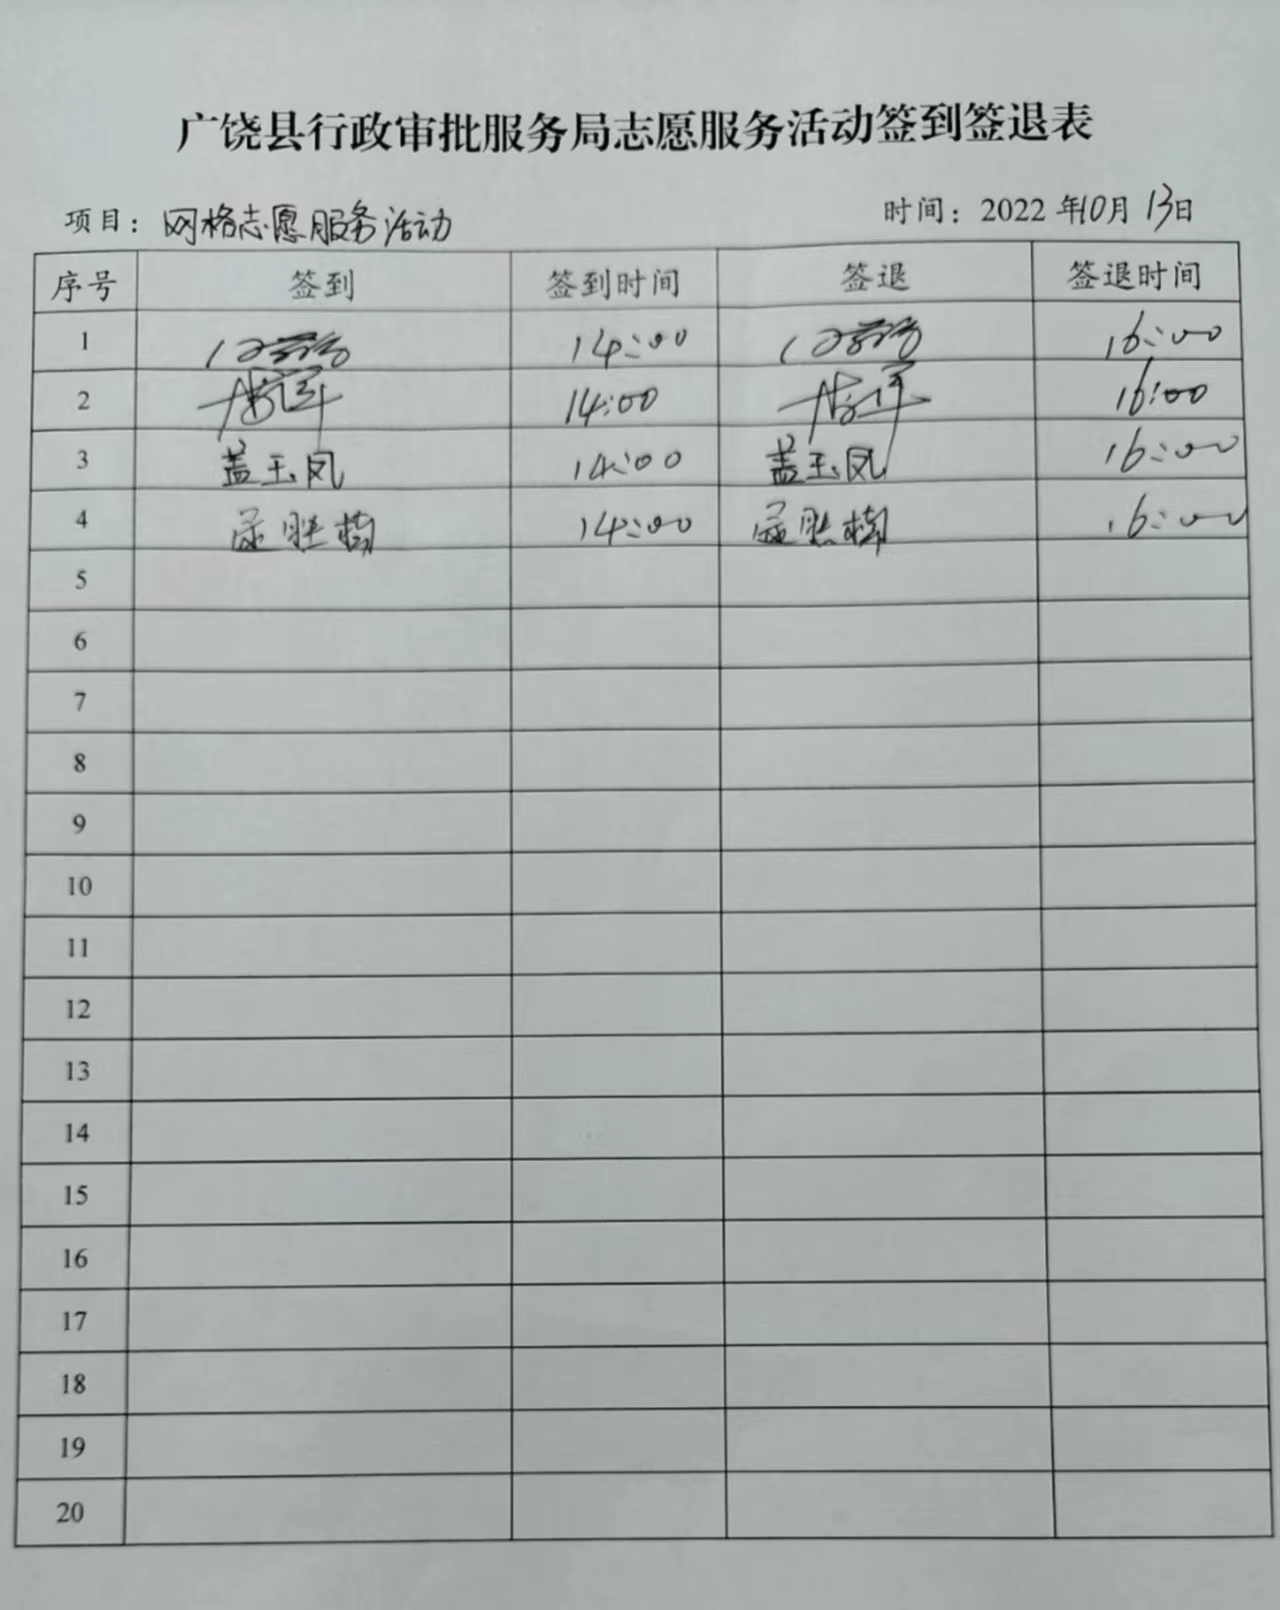 广饶县行政审批服务局志愿服务活动签到签退表
项目：网格志愿服务活动 时间：2022年10月13日
序号 签到 签到时间 签退 签退时间
1 14:00 16:00
2 14:00 16:00
3 盖玉凤 14:00 盖玉凤 16:00
4 14:00 16:00
5
6
7
8
9
10
11
12
13
14
15
16
17
18
19
20